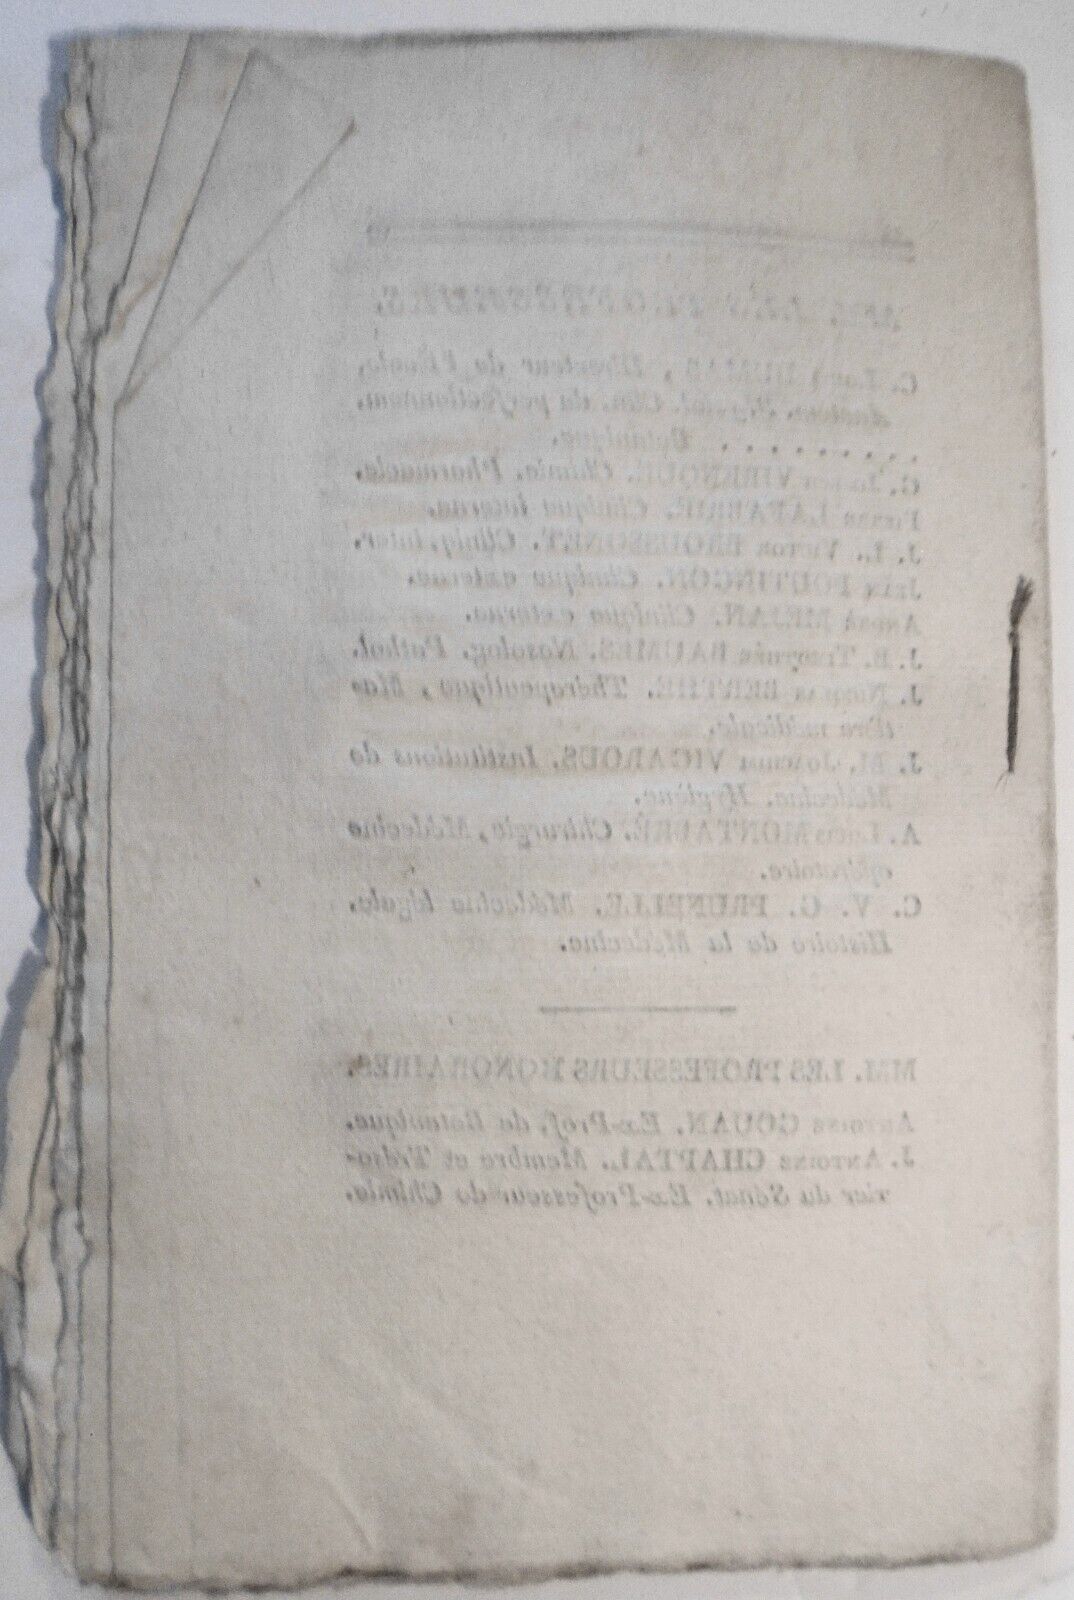 MM. LES PROFESSEURS.
C. Louis DUMAS, Directeur de l'École,
Anatom. Physiol. Clin. de perfectionnem.
. . . . . . . . . Botanique.
G. Joseph VIRENQUE. Chimie. Pharmacie.
Pierre LAFABRIE. Clinique interne.
J. L. Victor BROUSSONET. Cliniq. inter.
Jean POUTINGON. Clinique externe.
André MEJAN. Clinique externe.
J. B. Timothée BAUMES. Nosolog. Pathol.
J. Nicolas BERTHE. Thérapeutique, Ma-
tière médicale.
J. M. Joachim VIGAROUS. Institutions de
Médecine. Hygiène.
A. Louis MONTABRÉ. Chirurgie, Médecine
opératoire.
C. V. G. PRUNELLE. Médecine légale.
Histoire de la Médecine.
MM. LES PROFESSEURS HONORAIRES.
Antoine GOUAN. Ex-Prof. de Botanique.
J. Antoine CHAPTAL. Membre et Tréso-
rier du Sénat. Ex-Professeur de Chimie.